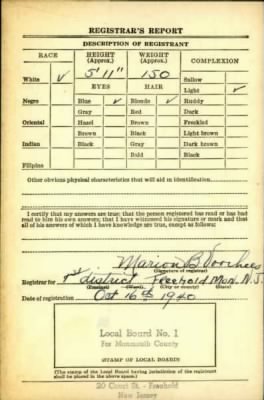 REGISTRAR'S REPORT
DESCRIPTION OF REGISTRANT
RACE HEIGHT (Approx.) WEIGHT (Approx.) COMPLEXION
White ✓ 5'11" 150 Sallow
EYES HAIR Light ✓
Negro Blue ✓ Blonde ✓ Ruddy
Gray Red Dark
Oriental Hazel Brown Freckled
Brown Black Light brown
Indian Black Gray Dark brown
Bald Black
Filipino
Other obvious physical characteristics that will aid in identification
I certify that my answers are true; that the person registered has read or has had
read to him his own answers; that I have witnessed his signature or mark and that
all of his answers of which I have knowledge are true, except as follows:
Marion B. Voorhees
(Signature of registrar)
Registrar for district Freehold Mon. N.J.
(Precinct) (Ward) (City or county) (State)
Date of registration Oct 16th 1940
Local Board No. 1
For Monmouth County
(STAMP OF LOCAL BOARD)
(The stamp of the Local Board having jurisdiction of the registrant
shall be placed in the above space.)
20 Court St. - Freehold
New Jersey